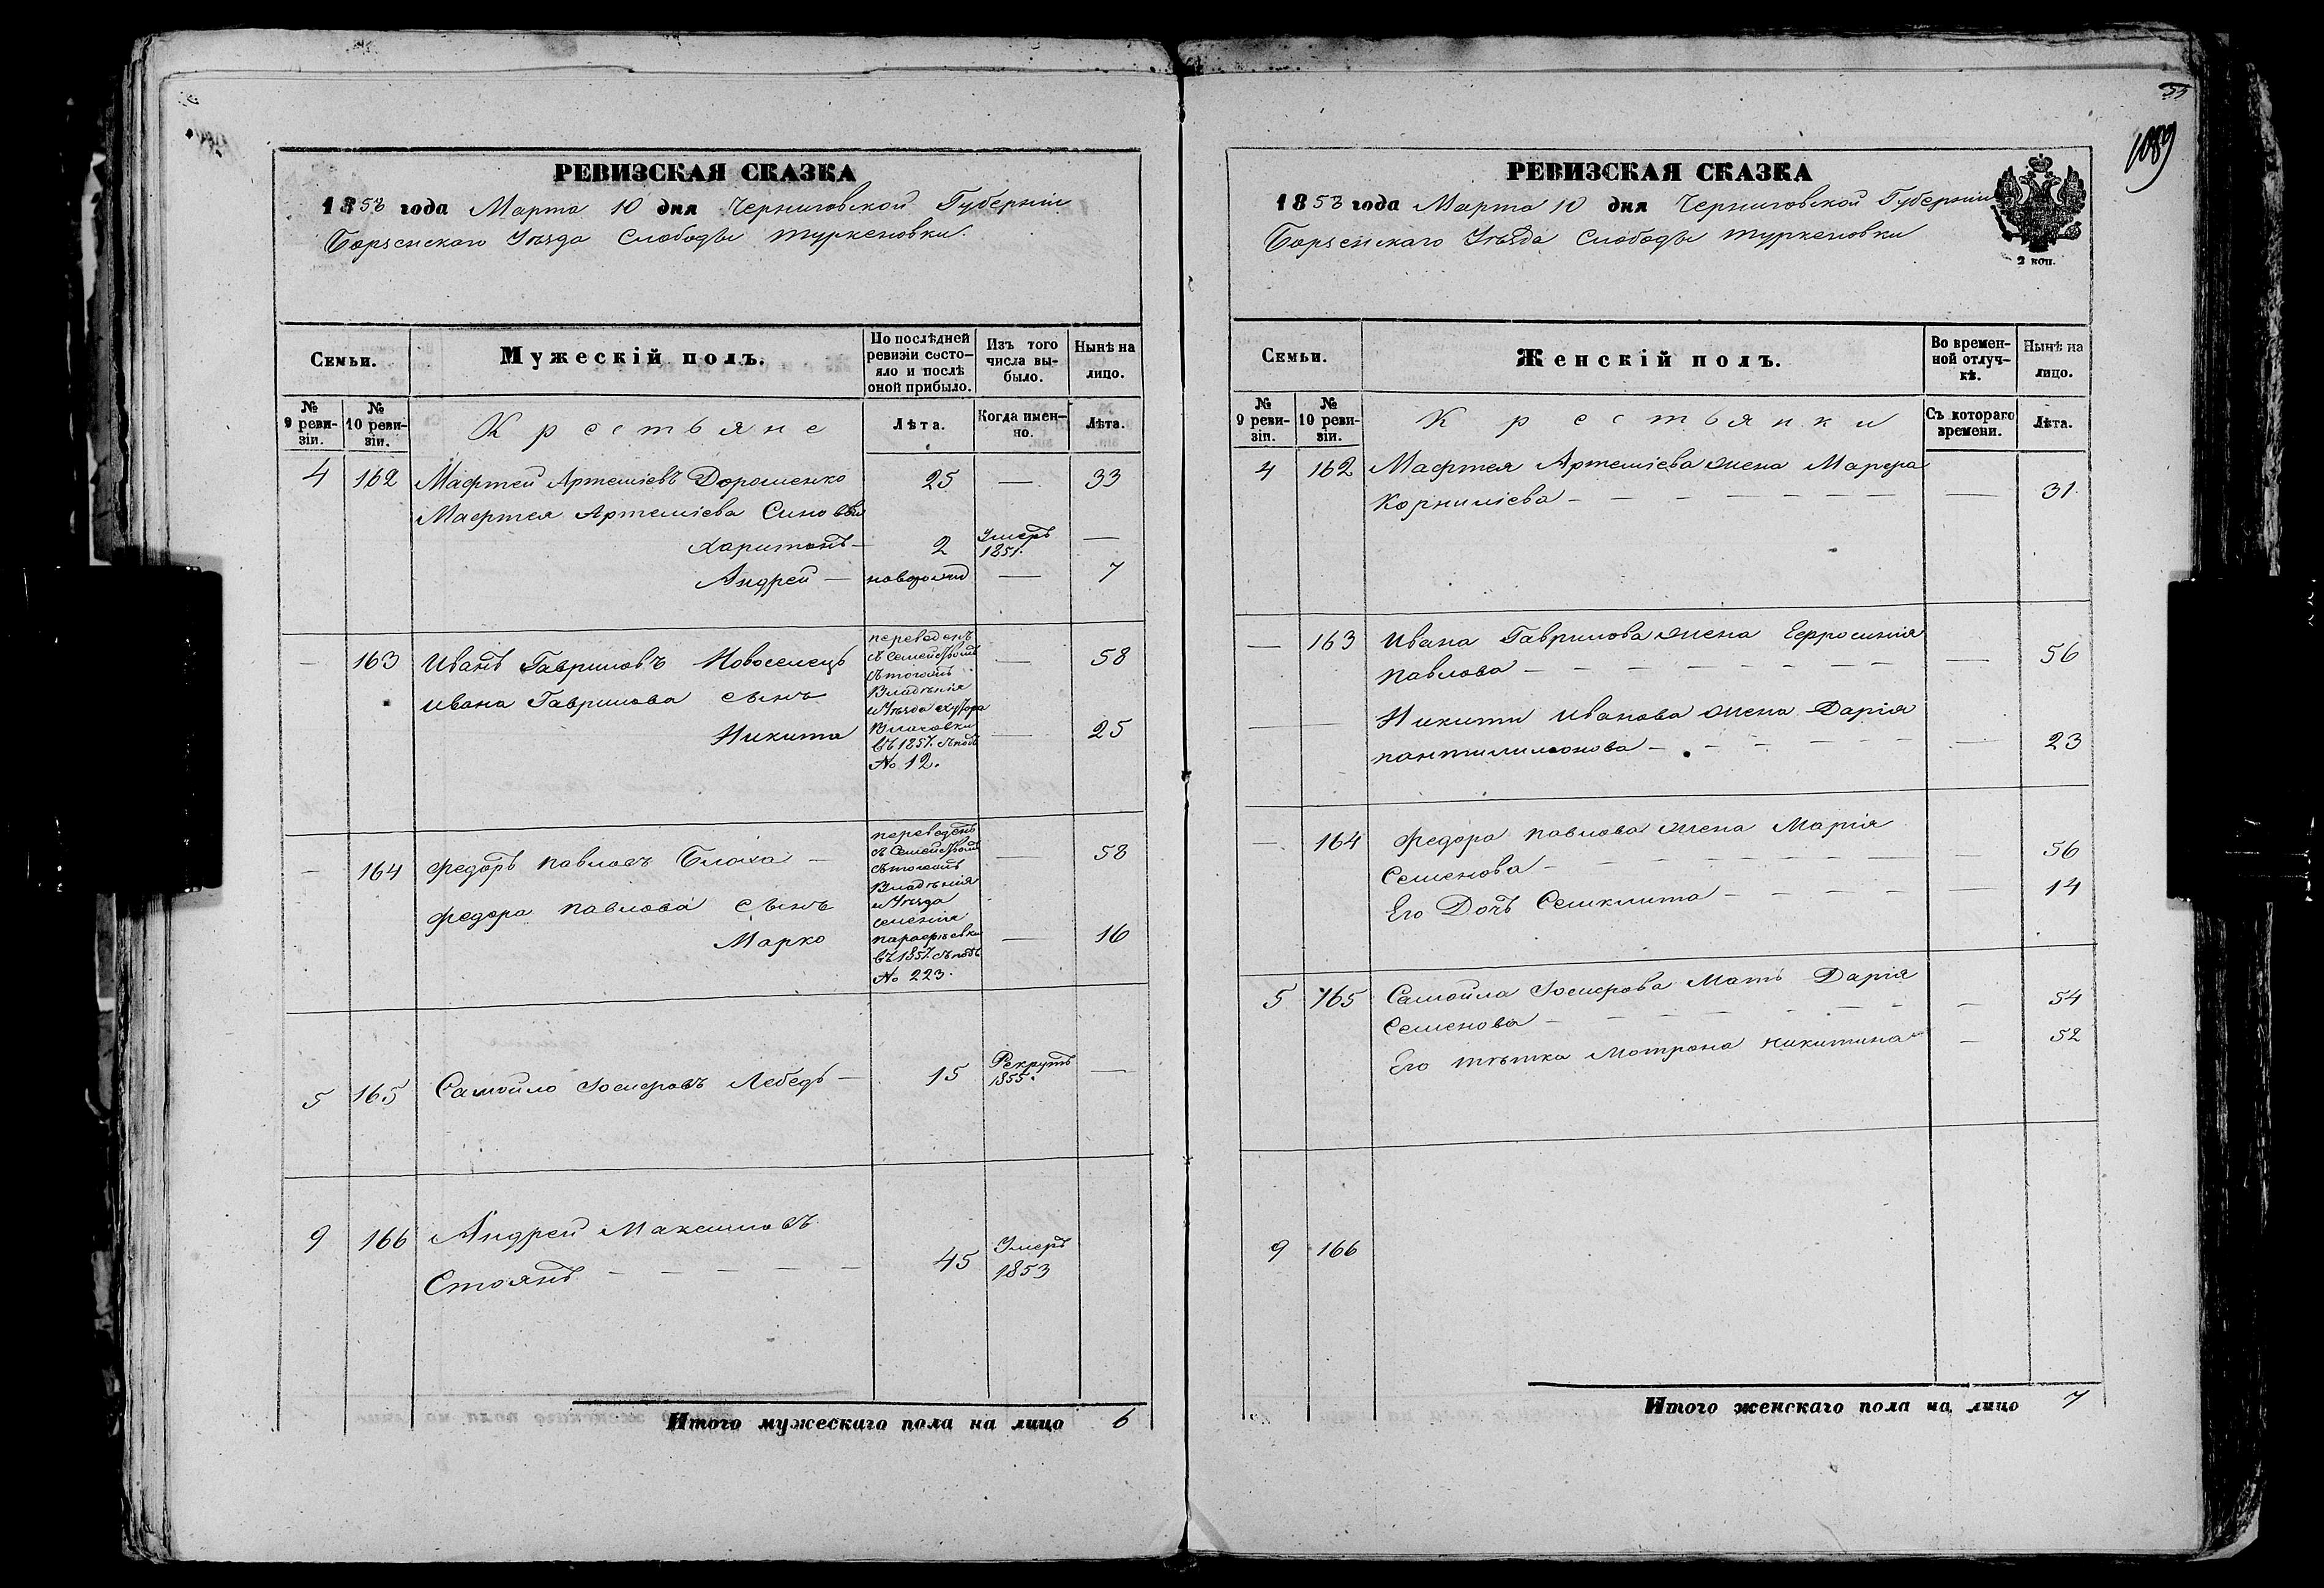 РЕВИЗСКАЯ СКАЗКА
1858 года Марта 10 дня Черниговской Губерніи
Борзенскаго Уѣзда Слободы Туркеновки
Семьи.
Мужескій полъ.
По послѣдней ревизіи состояло и послѣ оной прибыло.
Изъ того числа выбыло.
Нынѣ на лицо.
№ 9 ревизіи.
№ 10 ревизіи.
Крестьяне
Лѣта.
Когда именно.
Лѣта.
4 162 Мафтей Артеміевъ Дорошенко 25 — 33
Мафтея Артеміева Синовьи
Харитонъ — 2 Умеръ 1851. —
Андрей — новорожд — 7
— 163 Иванъ Гавриловъ Новоселецъ — 58
Ивана Гаврилова сынъ
Никита — 25
переведенъ
съ Семействомъ
съ тогожъ
Владѣнія
и Уѣзда хутора
въ 1857. съ подъ
№ 12.
— 164 Федоръ Павловъ Блоха — — 58
Федора Павлова сынъ
Марко — 16
переведенъ
съ Семействомъ
съ тогожъ
Владѣнія
и Уѣзда
имѣнія
Парафѣевки
въ 1857. съ подъ
№ 223.
5 165 Самойло Іосифовъ Лебедь — 15 Рекрутъ 1855. —
9 166 Андрей Максимовъ
Стоянъ — — — — — 45 Умеръ 1853
Итого мужескаго пола на лицо 6
55
1089
РЕВИЗСКАЯ СКАЗКА
1858 года Марта 10 дня Черниговской Губерніи
Борзенскаго Уѣзда Слободы Туркеновки
2 коп.
Семьи.
Женскій полъ.
Во временной отлучкѣ.
Нынѣ на лицо.
№ 9 ревизіи.
№ 10 ревизіи.
Крестьянки
Съ котораго времени.
Лѣта.
4 162 Мафтея Артеміева жена Марфа
Корниліева — — — — — — — — 31.
— 163 Ивана Гаврилова жена Евфросинія
Павлова — — — — — — — — — 56
— — Никиты Иванова жена Дарія
Пантилимонова — — — — — — — 23
— 164 Федора Павлова жена Марія
Семенова — — — — — — — — — 56
Его Дочь Секлита — — — — — 14
5 165 Самойла Іосифова Мать Дарія
Семенова — — — — — — — — 54
Его тѣтка Мотрона Никитина — 52
9 166
Итого женскаго пола на лицо 7